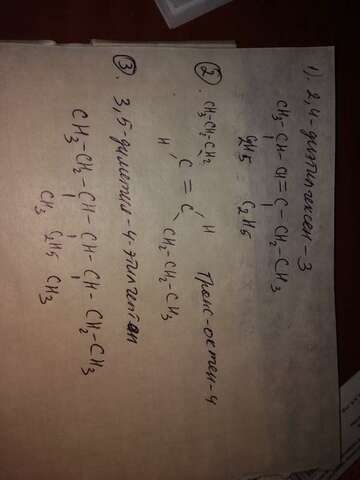 1). 2,4-диэтилгексен-3
CH₃-CH-CH=C-CH₂-CH₃
C₂H5 C₂H5
②.
CH₃-CH₂-CH₂ H
C=C
H CH₂-CH₂-CH₃
Транс-октен-4
③. 3,5-диметил-4-этилгептан
CH₃-CH₂-CH-CH-CH-CH₂-CH₃
CH₃ C₂H5 CH₃